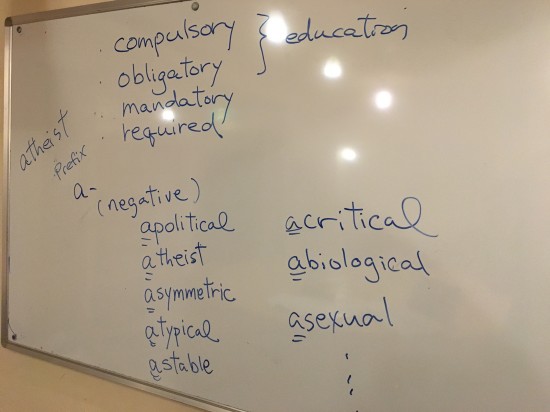 compulsory } education
obligatory
mandatory
required
atheist
prefix
a-
(negative)
apolitical
atheist
asymmetric
atypical
astable
acritical
abiological
asexual